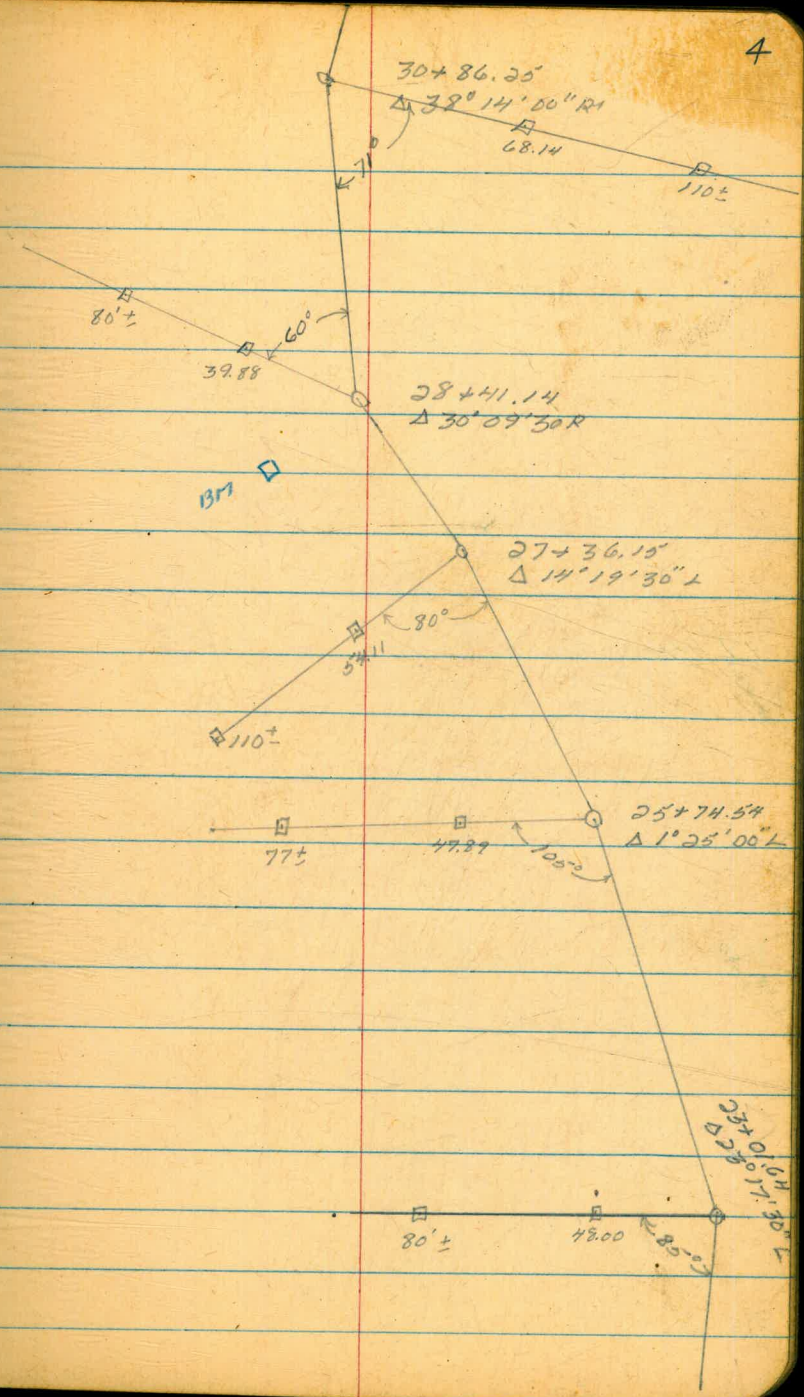 4
30+86.25
Δ 38°14'00" Rt
68.14
110±
71°
80'±
60°
39.88
28+41.14
Δ 30°09'30 R
BM
27+36.15
Δ 14°19'30" L
80°
54.11
110±
25+74.54
Δ 1°25'00" L
77±
47.89
105°
23+01.64
Δ 22°17'30" L
80'±
48.00
85°